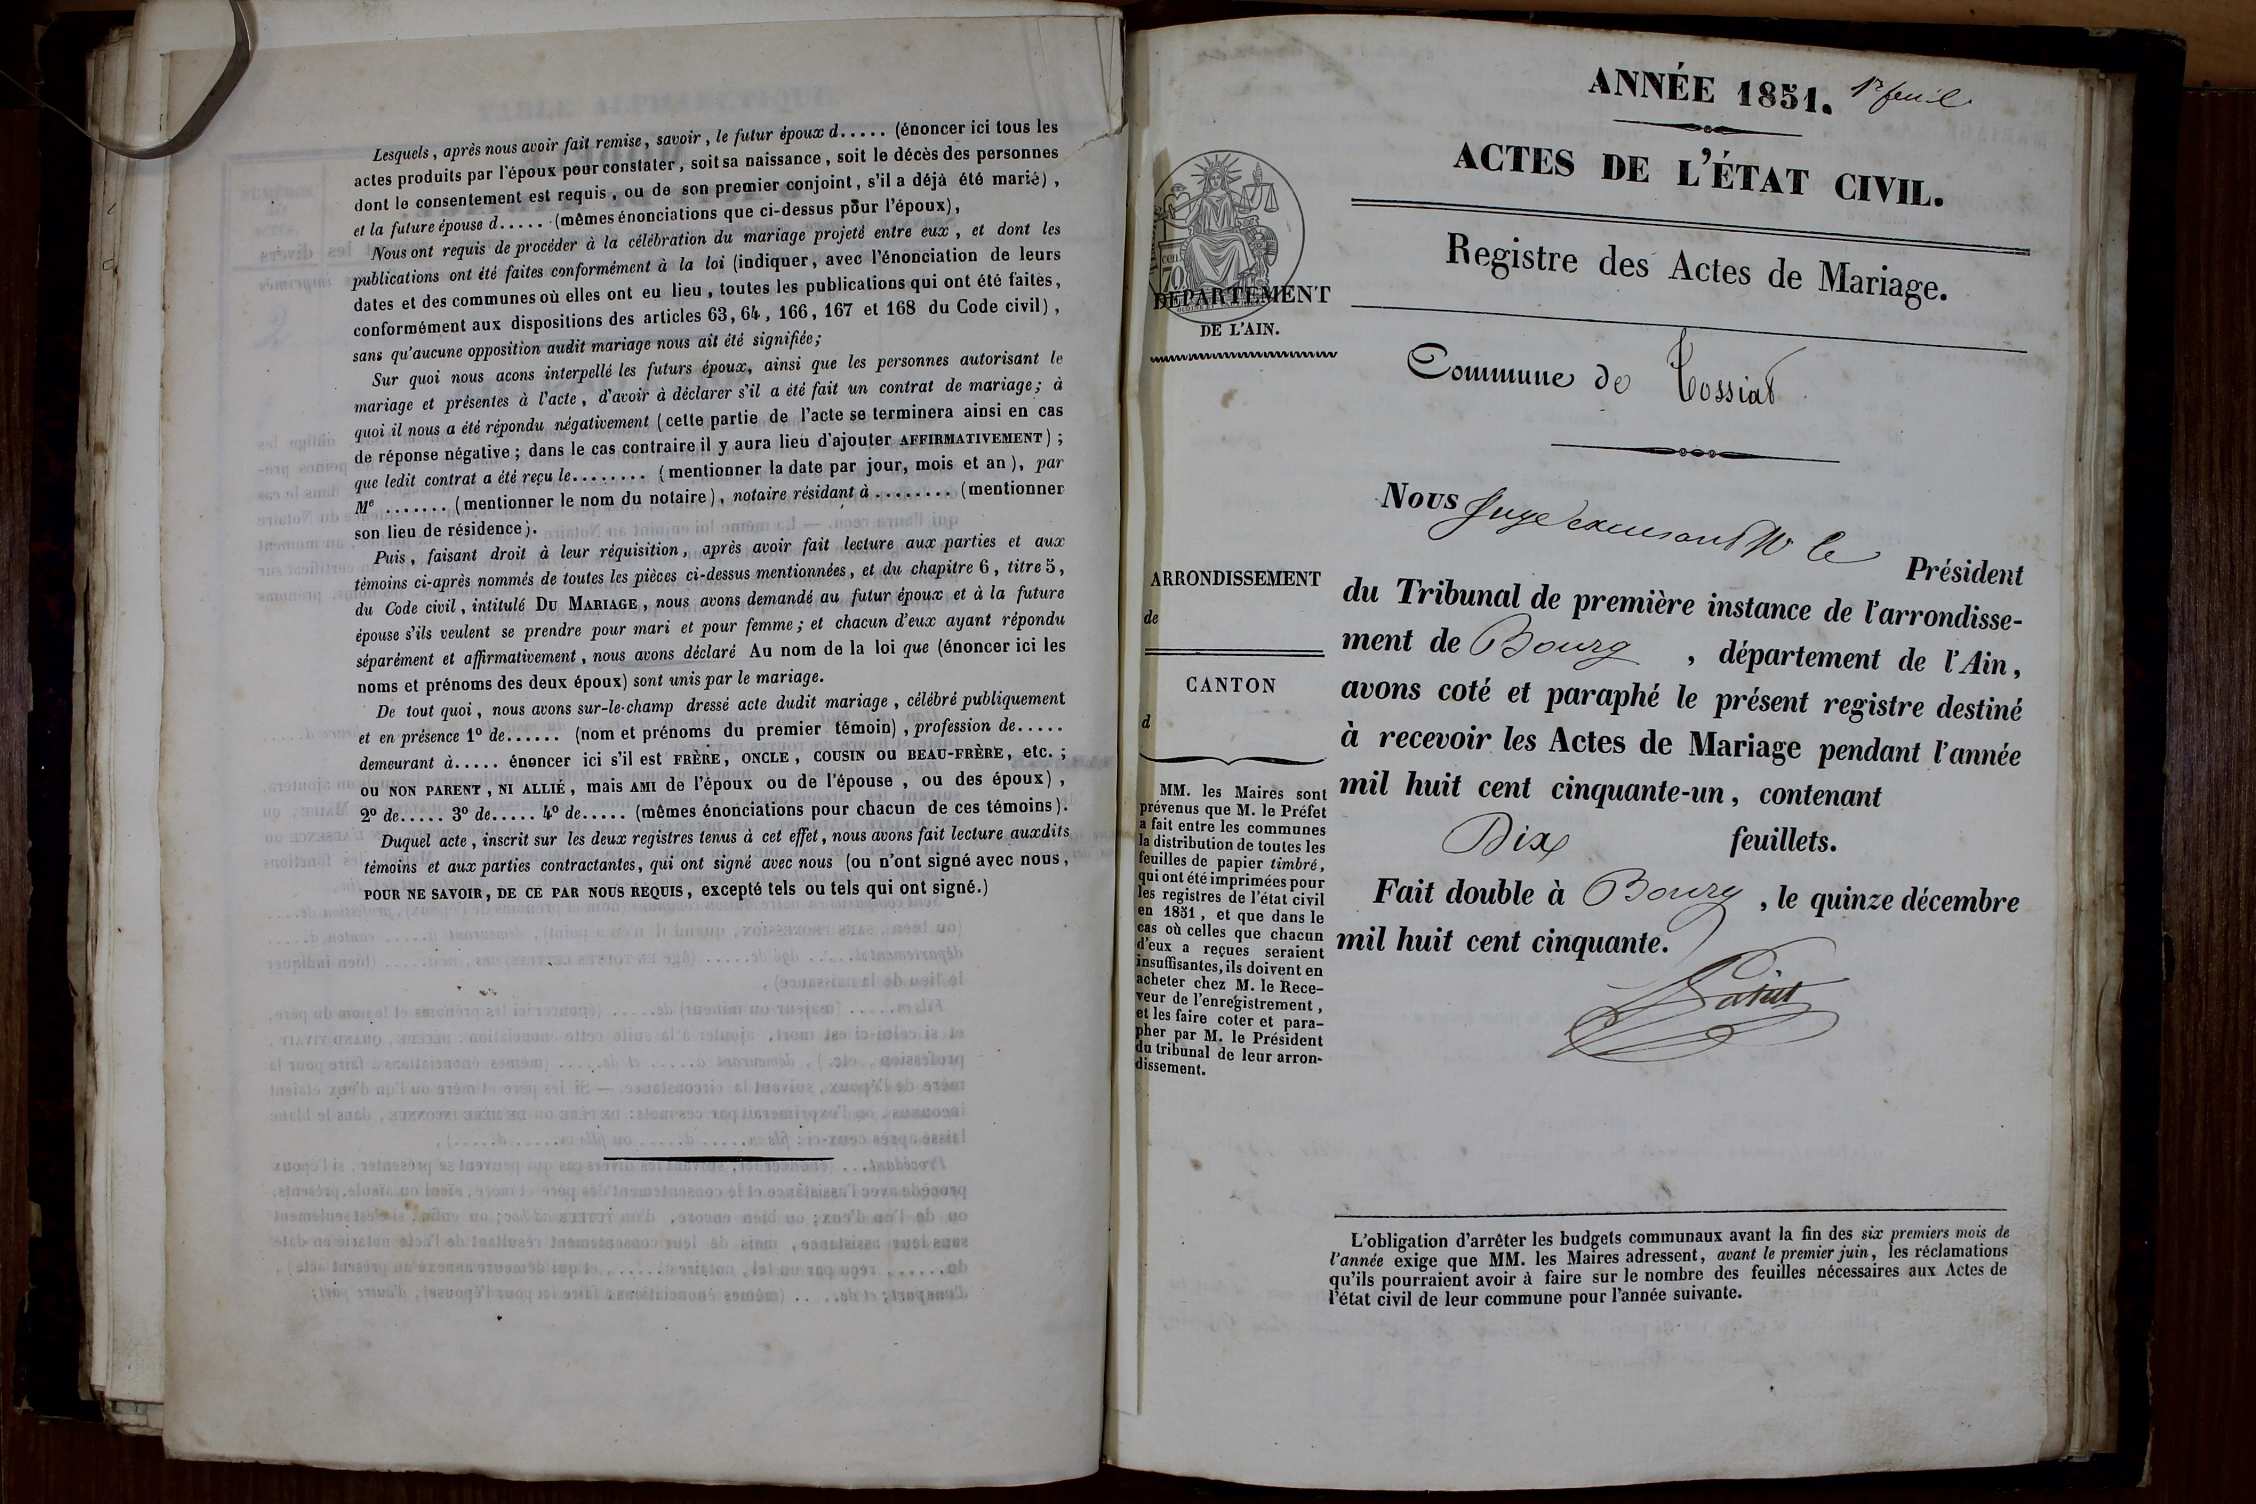 Lesquels, après nous avoir fait remise, savoir, le futur époux d..... (énoncer ici tous les
actes produits par l'époux pour constater, soit sa naissance, soit le décès des personnes
dont le consentement est requis, ou de son premier conjoint, s'il a déjà été marié),
et la future épouse d..... (mêmes énonciations que ci-dessus pour l'époux),
Nous ont requis de procéder à la célébration du mariage projeté entre eux, et dont les
publications ont été faites conformément à la loi (indiquer, avec l'énonciation de leurs
dates et des communes où elles ont eu lieu, toutes les publications qui ont été faites,
conformément aux dispositions des articles 63, 64, 166, 167 et 168 du Code civil),
sans qu'aucune opposition audit mariage nous ait été signifiée;
Sur quoi nous acons interpellé les futurs époux, ainsi que les personnes autorisant le
mariage et présentes à l'acte, d'avoir à déclarer s'il a été fait un contrat de mariage; à
quoi il nous a été répondu négativement (cette partie de l'acte se terminera ainsi en cas
de réponse négative; dans le cas contraire il y aura lieu d'ajouter AFFIRMATIVEMENT);
que ledit contrat a été reçu le........ (mentionner la date par jour, mois et an), par
Me ....... (mentionner le nom du notaire), notaire résidant à ........ (mentionner
son lieu de résidence).
Puis, faisant droit à leur réquisition, après avoir fait lecture aux parties et aux
témoins ci-après nommés de toutes les pièces ci-dessus mentionnées, et du chapitre 6, titre 5,
du Code civil, intitulé DU MARIAGE, nous avons demandé au futur époux et à la future
épouse s'ils veulent se prendre pour mari et pour femme; et chacun d'eux ayant répondu
séparément et affirmativement, nous avons déclaré Au nom de la loi que (énoncer ici les
noms et prénoms des deux époux) sont unis par le mariage.
De tout quoi, nous avons sur-le-champ dressé acte dudit mariage, célébré publiquement
et en présence 1º de...... (nom et prénoms du premier témoin), profession de.....
demeurant à..... énoncer ici s'il est FRÈRE, ONCLE, COUSIN OU BEAU-FRÈRE, etc.;
ou NON PARENT, NI ALLIÉ, mais AMI de l'époux ou de l'épouse, ou des époux),
2º de..... 3º de..... 4º de..... (mêmes énonciations pour chacun de ces témoins).
Duquel acte, inscrit sur les deux registres tenus à cet effet, nous avons fait lecture auxdits
témoins et aux parties contractantes, qui ont signé avec nous (ou n'ont signé avec nous,
POUR NE SAVOIR, DE CE PAR NOUS REQUIS, excepté tels ou tels qui ont signé.)
ANNÉE 1851. 1er feuil
ACTES DE L'ÉTAT CIVIL.
Registre des Actes de Mariage.
cen. 70
DÉPARTEMENT
DE L'AIN.
Commune de Tossiat
Nous Juge excusant Mr le Président
du Tribunal de première instance de l'arrondisse-
ment de Bourg, département de l'Ain,
avons coté et paraphé le présent registre destiné
à recevoir les Actes de Mariage pendant l'année
mil huit cent cinquante-un, contenant
Dix feuillets.
Fait double à Bourg, le quinze décembre
mil huit cent cinquante.
ARRONDISSEMENT
de
CANTON
d
MM. les Maires sont
prévenus que M. le Préfet
a fait entre les communes
la distribution de toutes les
feuilles de papier timbré,
qui ont été imprimées pour
les registres de l'état civil
en 1851, et que dans le
cas où celles que chacun
d'eux a reçues seraient
insuffisantes, ils doivent en
acheter chez M. le Rece-
veur de l'enregistrement,
et les faire coter et para-
pher par M. le Président
du tribunal de leur arron-
dissement.
L'obligation d'arrêter les budgets communaux avant la fin des six premiers mois de
l'année exige que MM. les Maires adressent, avant le premier juin, les réclamations
qu'ils pourraient avoir à faire sur le nombre des feuilles nécessaires aux Actes de
l'état civil de leur commune pour l'année suivante.